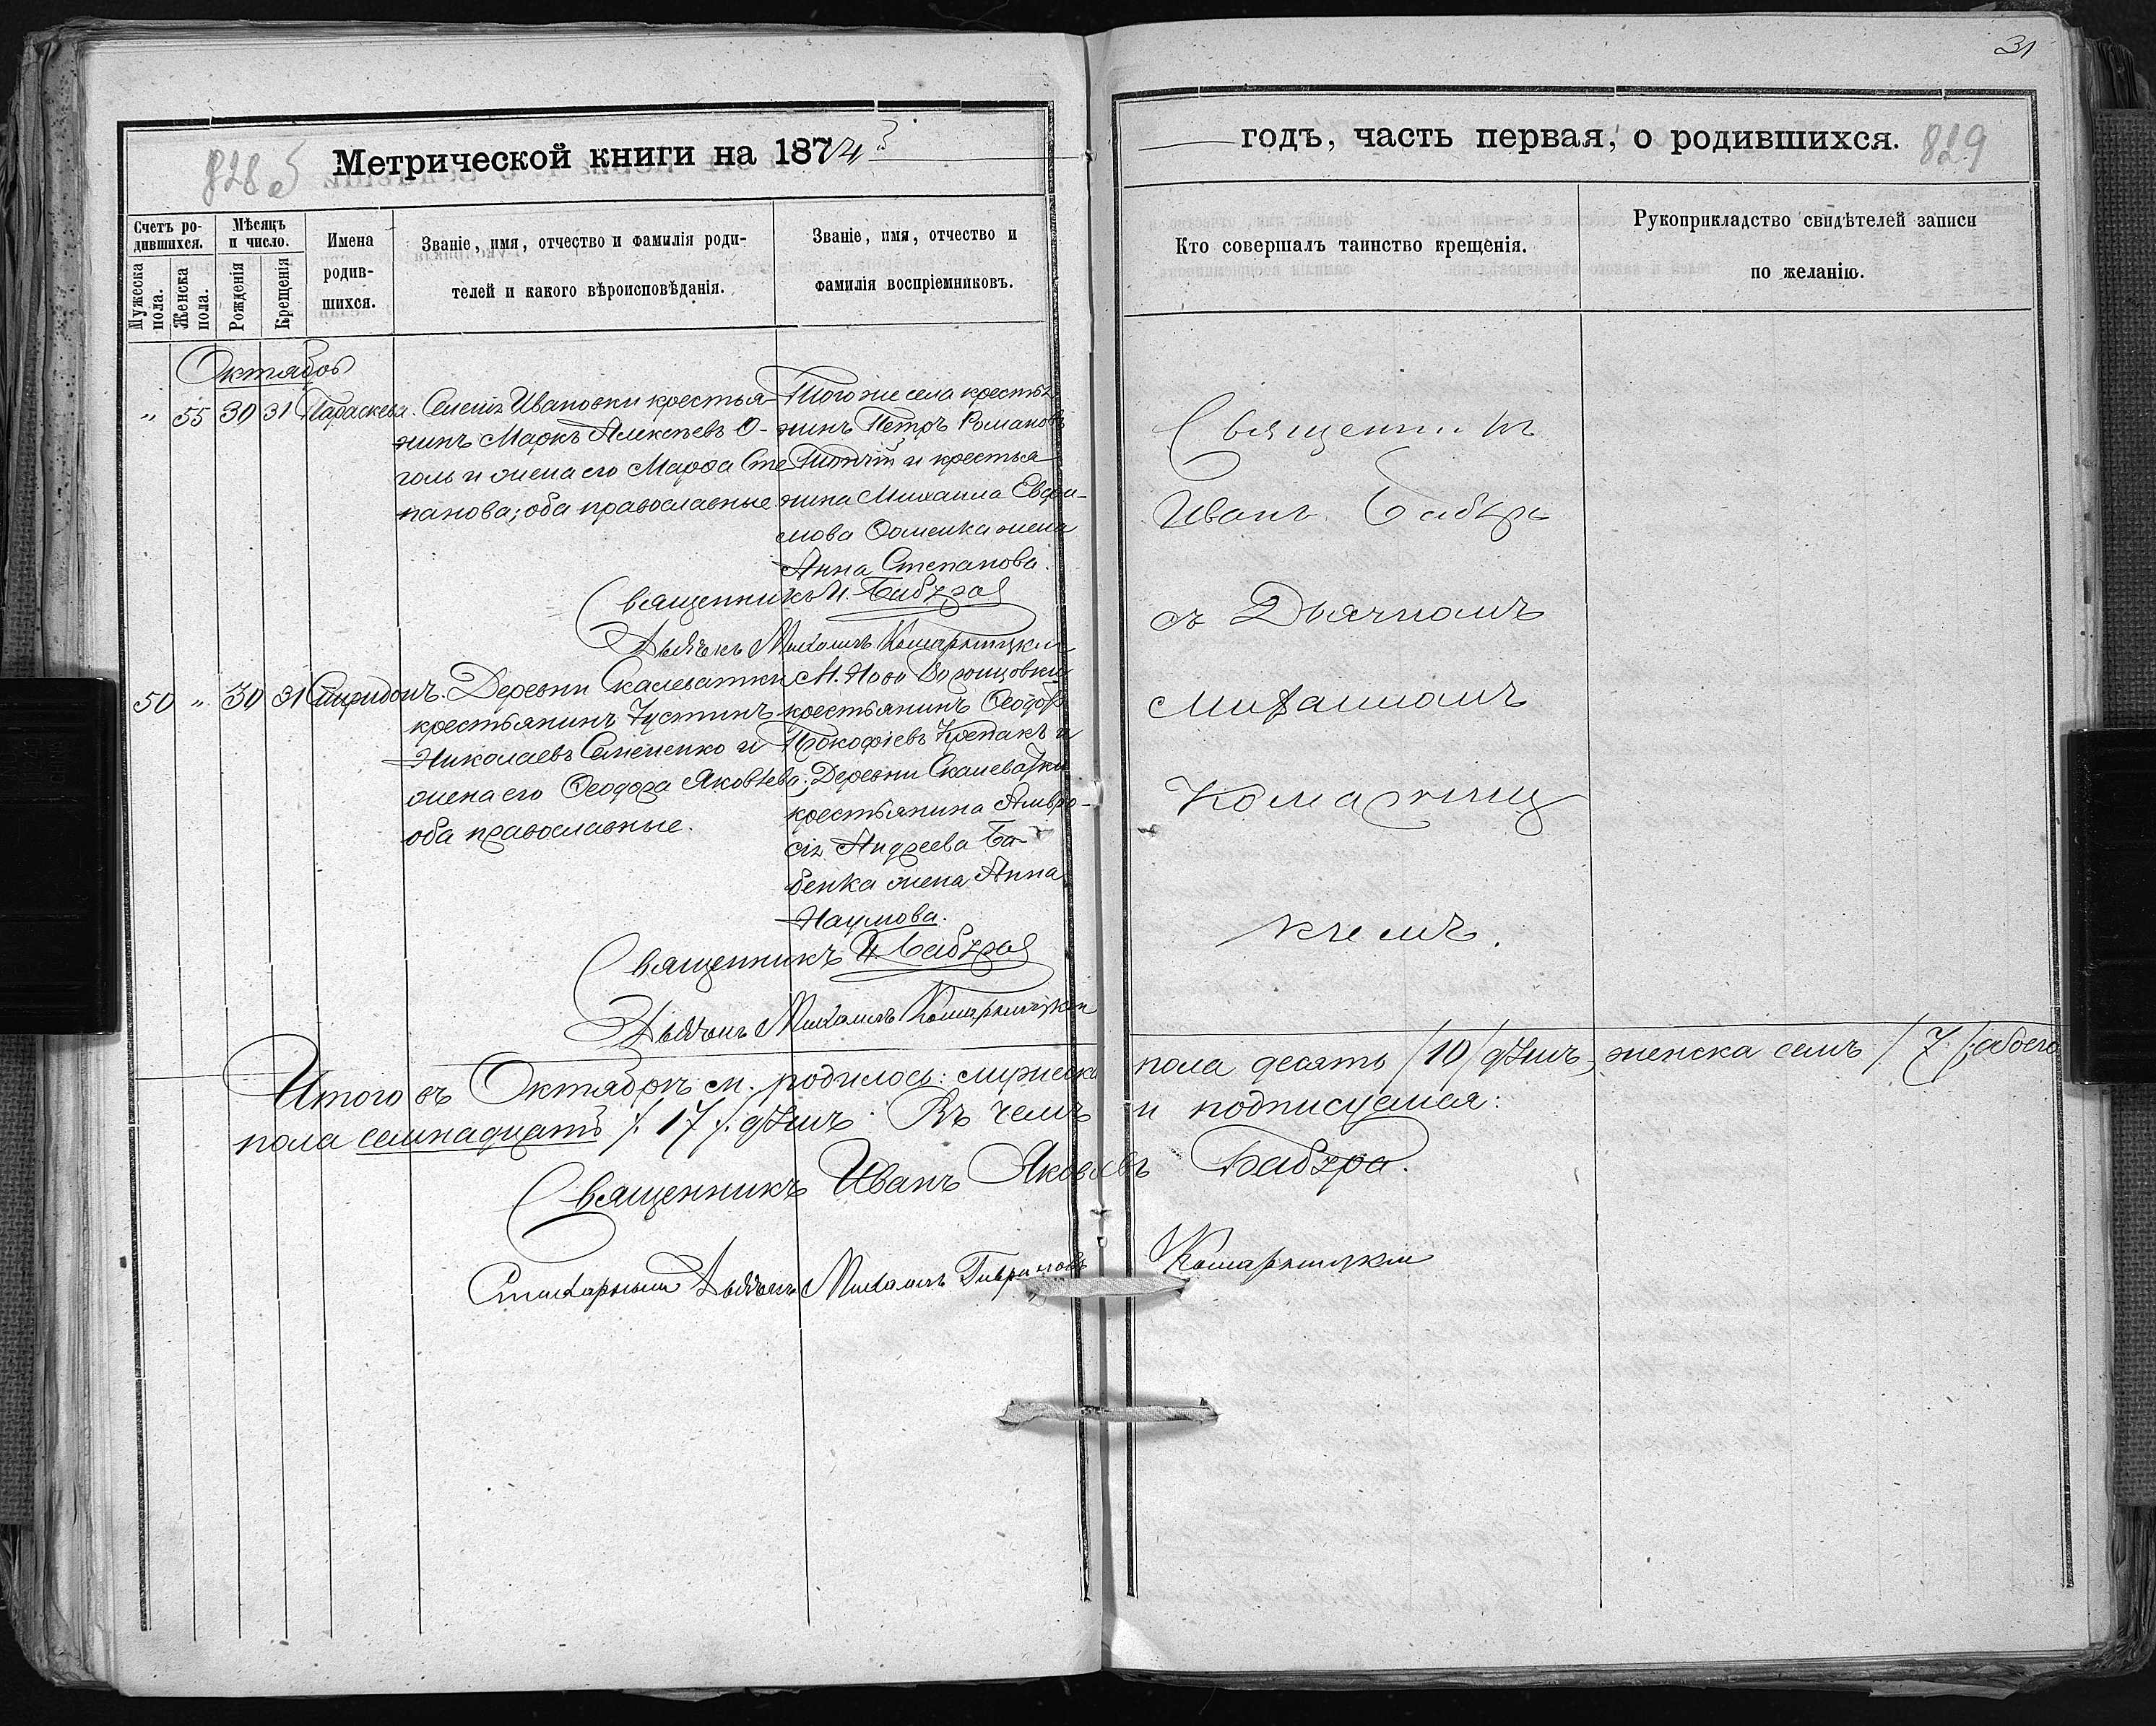 31
828 об
Метрической книги на 1874
годъ, часть первая, о родившихся.
829
Счетъ ро-
дившихся.
Мужеска пола.
Женска пола.
Мѣсяцъ
и число.
Рожденія
Крещенія
Имена
родив-
шихся.
Званіе, имя, отчество и фамилія роди-
телей и какого вѣроисповѣданія.
Званіе, имя, отчество и
фамилія воспріемниковъ.
Кто совершалъ таинство крещенія.
Рукоприкладство свидѣтелей записи
по желанію.
Октябрь
" 55 30 31 Параскева.
Ивановки крестья-
нинъ Маркъ Алексѣевъ О-
голь и жена его Марѳа Сте-
панова; оба православные.
Того же села крестья-
нинъ Петръ Романовъ
и крестья-
нина Михаила Евфи-
мова жена
Анна Степанова.
Священникъ И. Бабура
Дьячокъ Михаилъ Комарницкій
50 " 30 31 Спиридонъ.
Деревни Скалеватки
крестьянинъ Іустинъ
Николаевъ Семененко и
жена его Ѳеодора Яковлева;
оба православные.
М. Ново
крестьянинъ Ѳеодоръ
Прокофіевъ и
Деревни Скалеватки
крестьянина Амвро-
сія Андреева Ба-
бенка жена Анна
Наумова.
Священникъ И. Бабура
Дьячокъ Михаилъ Комарницкій
Священникъ
Иванъ Бабура
съ Дьячкомъ
Михаиломъ
Комарниц
кимъ.
Итого въ Октябрѣ м. родилось: мужеска пола десять /10/ душъ, женска семь /7/; обоего
пола семнадцать /. 17 /. душъ. Въ чемъ и подписуемся:
Священникъ Иванъ Яковлевъ Бабура.
Стихарный Дьячокъ Михаилъ Гавриловъ Комарницкій